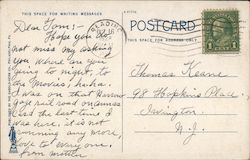 THIS SPACE FOR WRITING MESSAGES
POSTCARD
THIS SPACE FOR ADDRESS ONLY
READING
Dear Tom:-
Hope you do
not miss my asking
you where are you
going to-night, to
the Movies, haha.
I was on that Narrow
gage rail road on
last the last time I
was here, it is not
running any more,
love to every one,
from mother
Thomas Keane
98 Hopkins Place
Irvington
N.J.
1